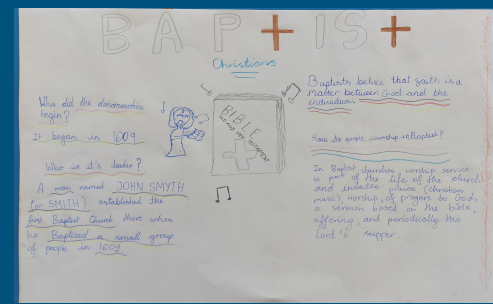 BAPTIST
Christians
When did the denomination
begin?
It began in 1609
Who is it's leader?
A man named JOHN SMYTH
(or SMITH) established the
first Baptist Church there when
he Baptized a small group
of people in 1609
BIBLE
OLD AND NEW TESTAMENT
Baptists believe that faith is a
matter between God and the
individuals
How do people worship in Baptist?
In Baptist churches worship service
is part of the life of the church
and includes praise (christian
music), worship, of prayers to God,
a sermon based on the bible,
offering, and periodically the
Lord's supper.